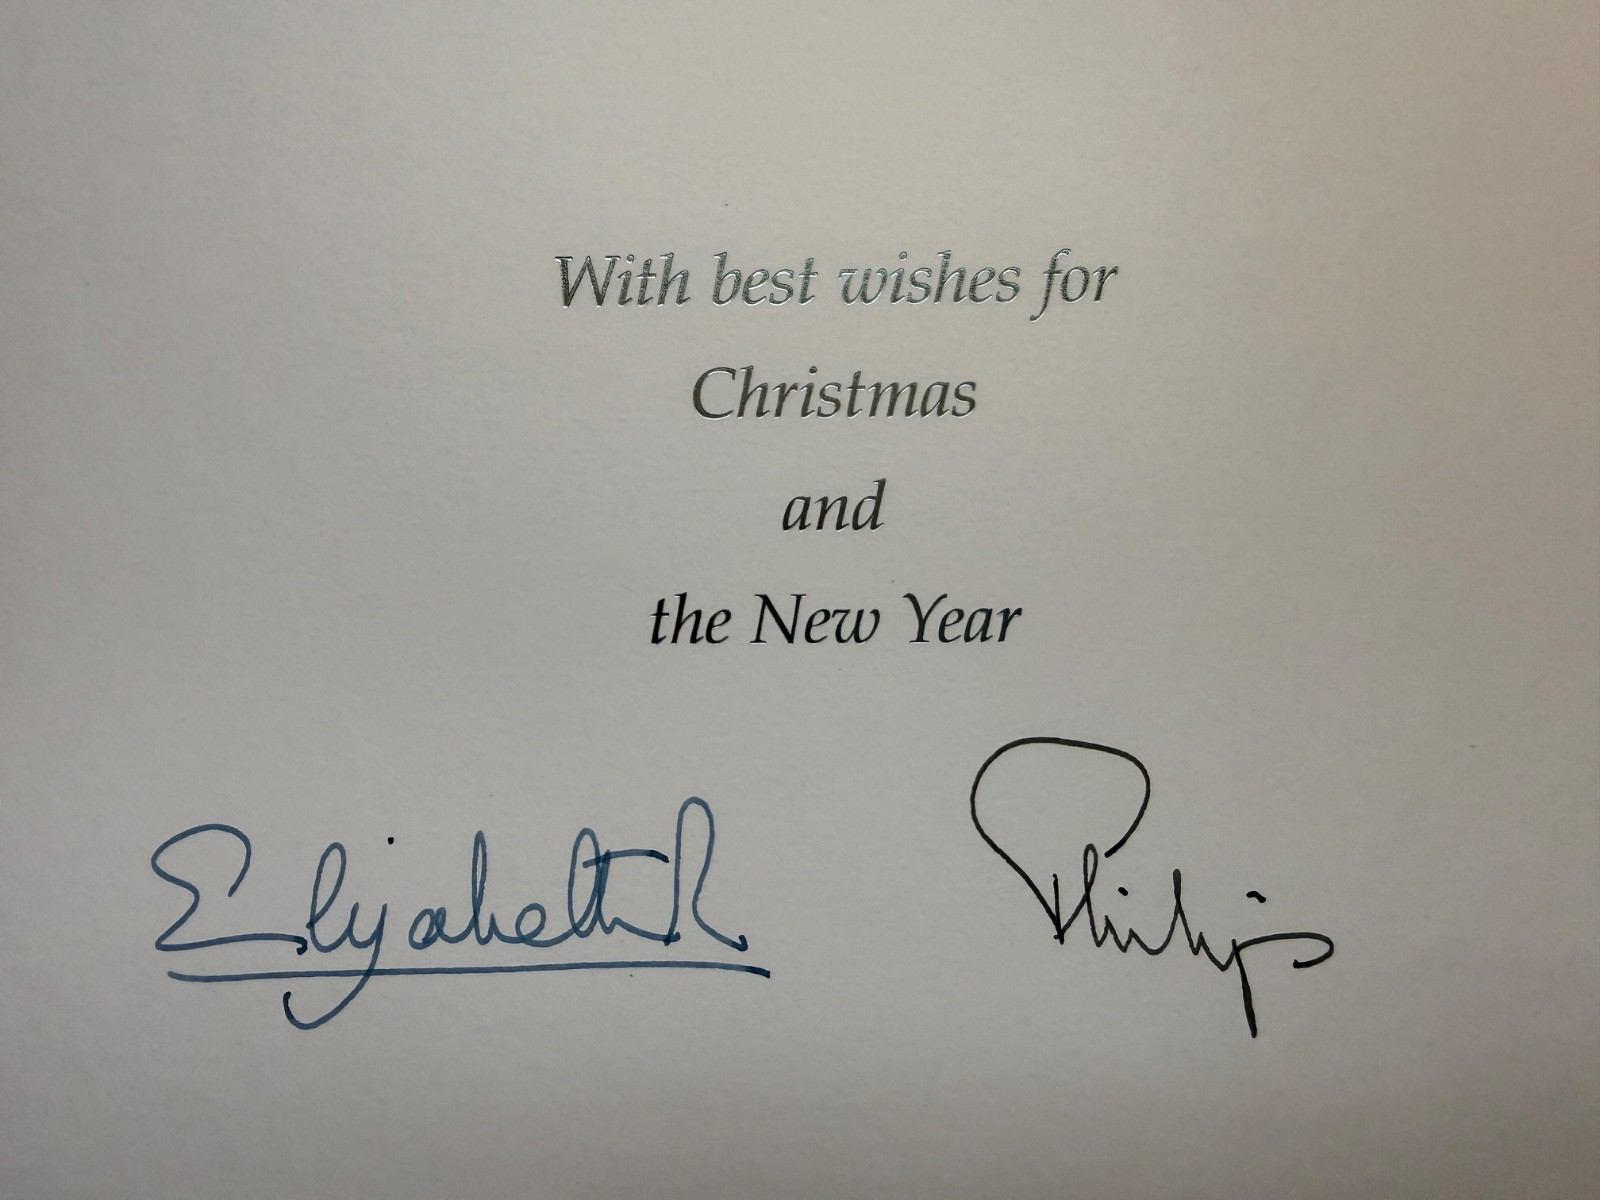 With best wishes for
Christmas
and
the New Year
Elizabeth R
Philip